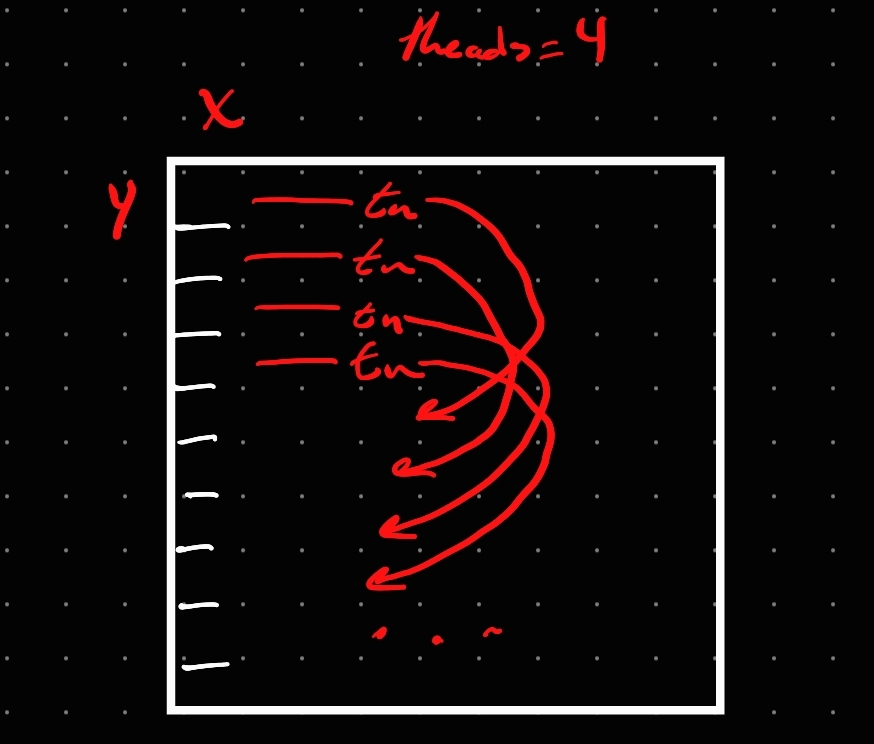 theads=4
x
y
tn
tn
tn
tn
...